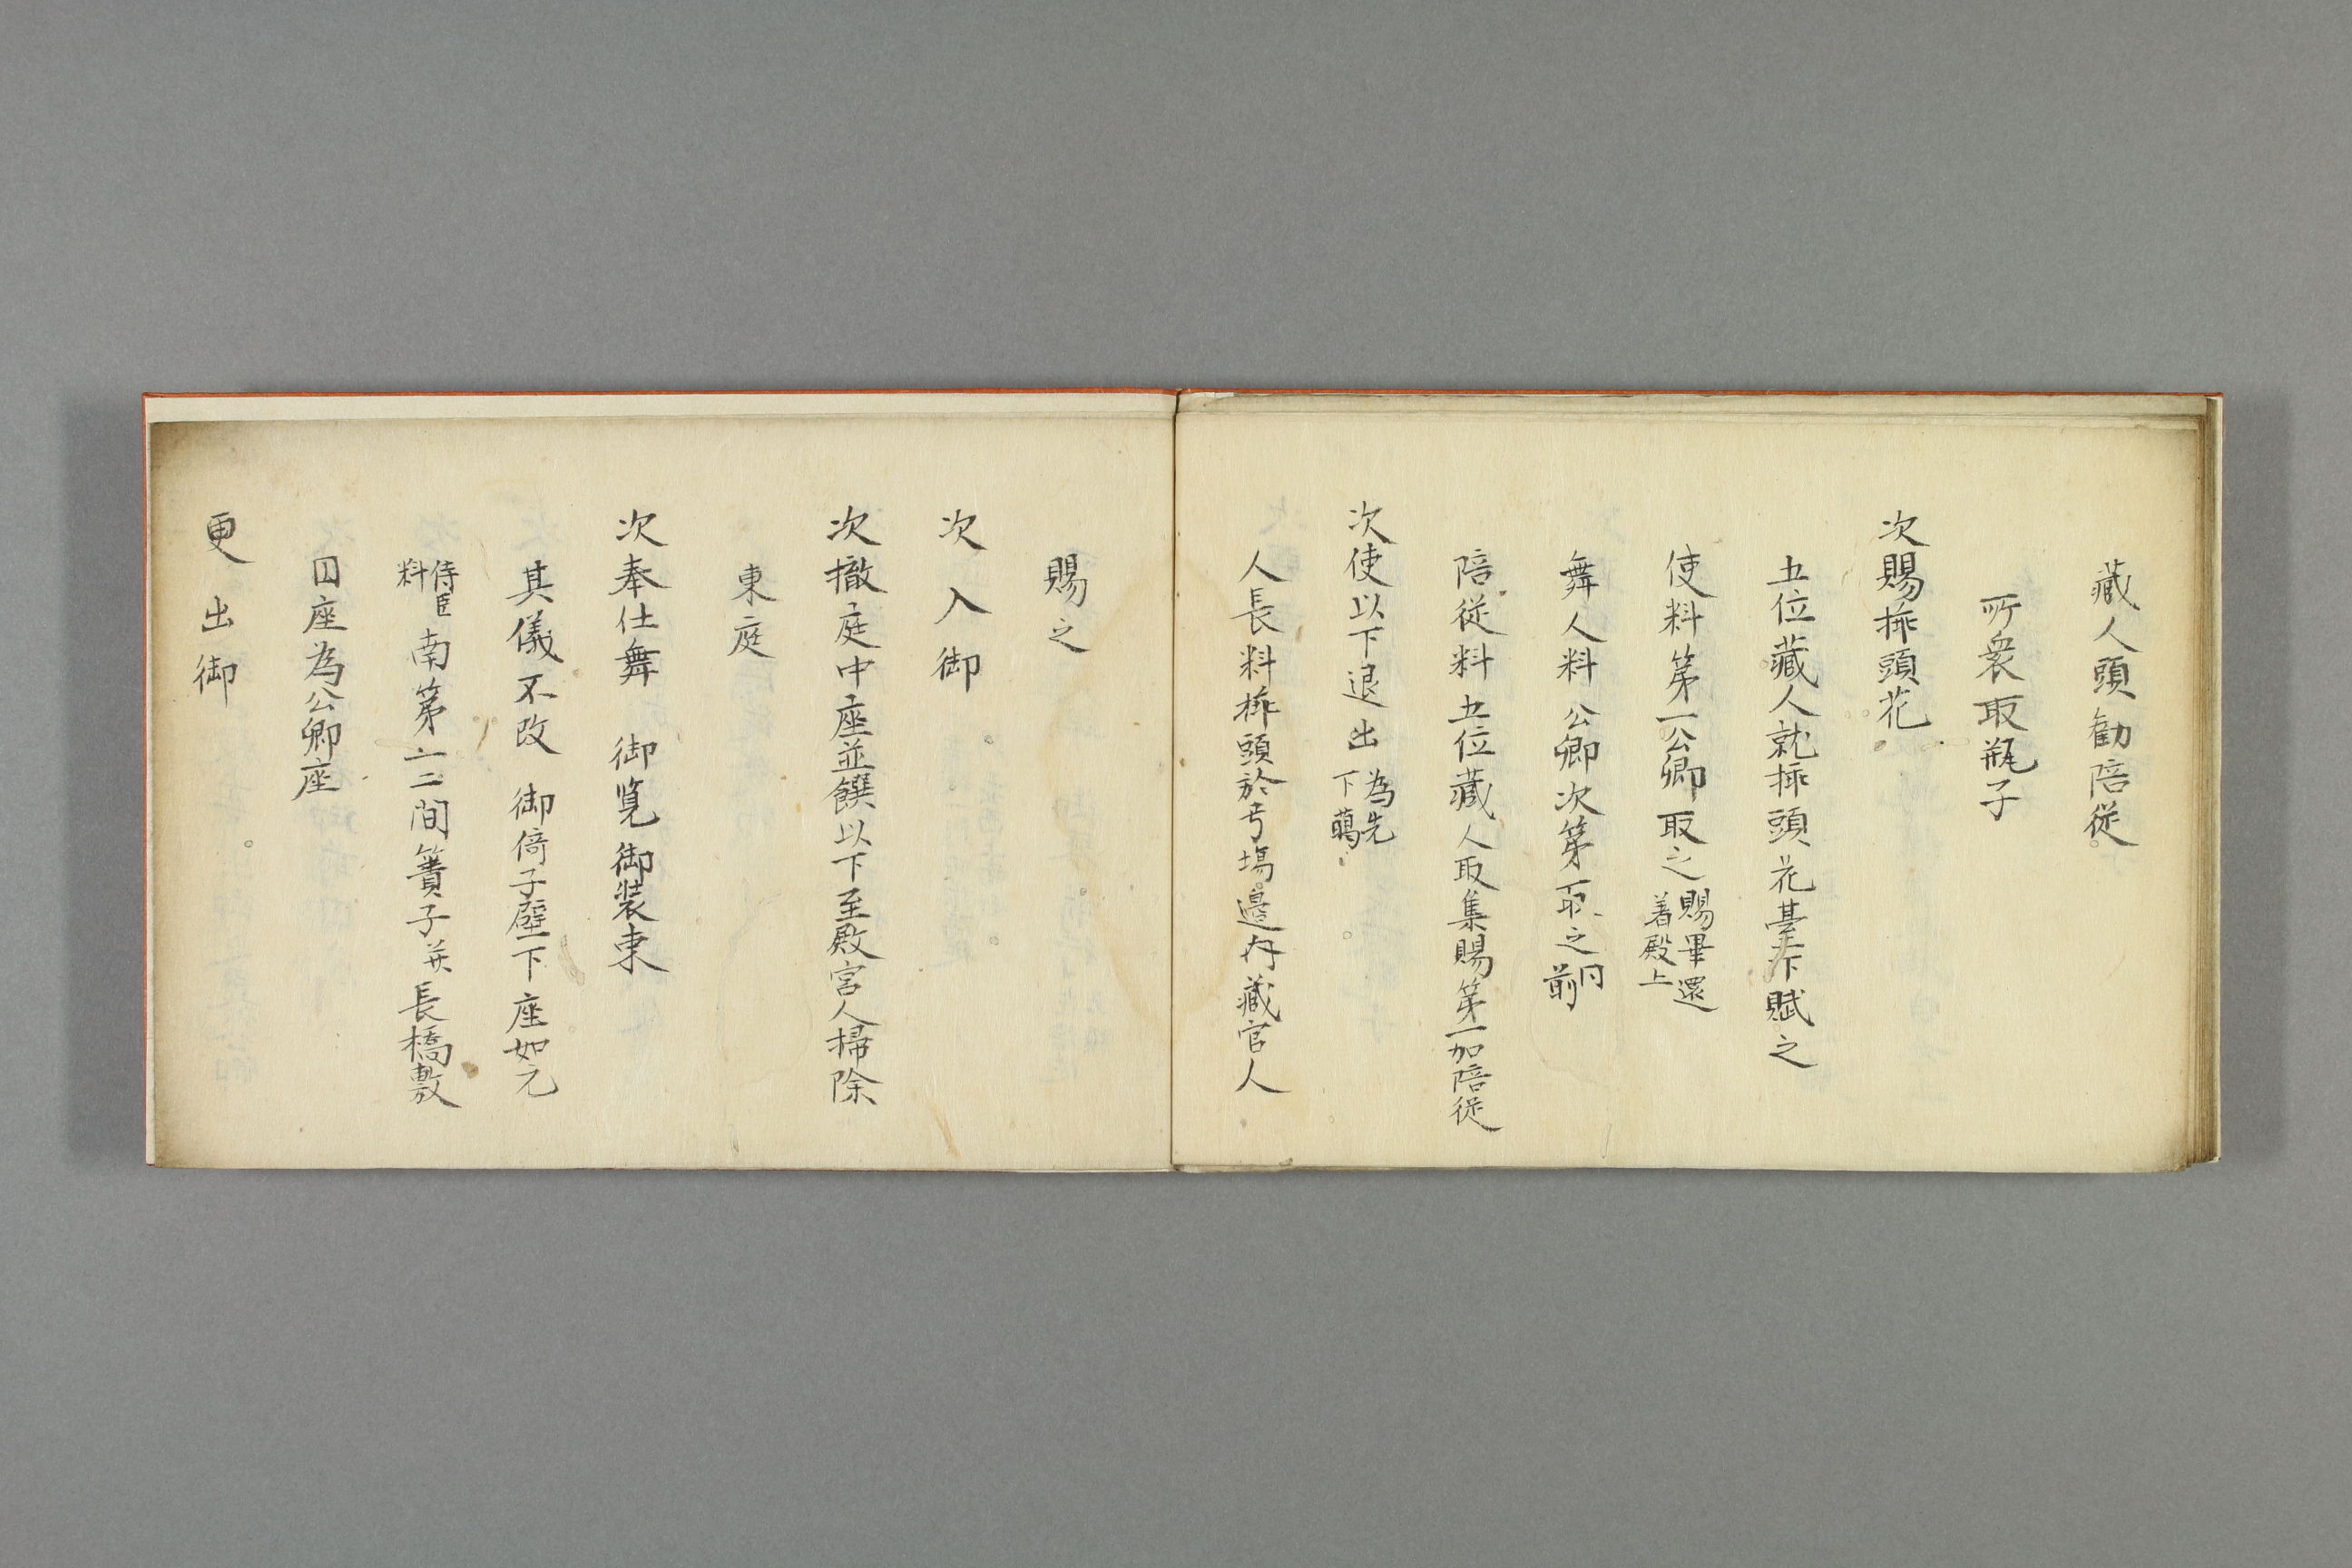 蔵人頭勧陪従
所衆取瓶子
次賜挿頭花
五位蔵人就挿頭花臺下賦之
使料第一公卿取之賜畢還
着殿上
舞人料公卿次第取之同
前
陪従料五位蔵人取集賜第一加陪従
次使以下退出為先
下﨟
人長料挿頭於弓場邊内蔵官人
賜之
次入御
次撤庭中座並饌以下至殿宮人掃除
東庭
次奉仕舞 御覧御装束
其儀不改 御倚子壁下座如元
侍臣
料南第一二間簀子并長橋敷
円座為公卿座
更出御